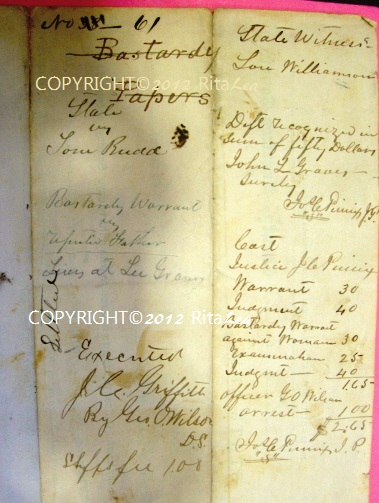 No. 61
Bastardy
COPYRIGHT©2012 Rita Lea
Papers
State
vs
Tom Rudd
Bastardy Warrant
vs
Reputed Father
Lives at Lee Graves
COPYRIGHT©2012 Rita Lea
Executed
J. C. Griffith
By Geo. O. Wilson
D.S.
Shffs fee 1.00
State Witness
Lou Williamson
Deft recognized in
Sum of fifty Dollars
John L Graves
Surety
J.P.
Cost
Justice
Warrant 30
Judgment 40
Bastardy Warrat
against Woman 30
Examination 25
Judgmt 40
1.65
officer G O Wilson
arrest 1.00
$2.65
J.P.